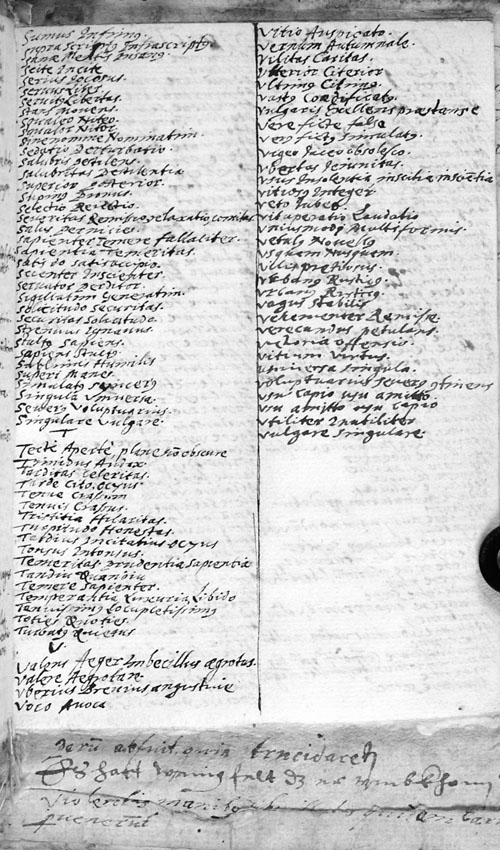 Summus Infimus.
Suprascriptus Infrascriptus
Sanae Mentis Insanus.
Scite Inscite
Serius Jocosus.
Servus Liber.
Servitus Libertas.
Stans movens.
Squaleo Niteo.
Squalor Nitor.
Sine nomine Nominatim.
Sedatio Perturbatio.
Salubris pestilens.
Salubritas Pestilentia
Superior posterior.
Supinus pronus.
Selectio Reiectio.
Severitas Remissio relaxatio, comitas
Salus Pernicies.
Sapienter Temere fallaciter.
Sapientia Temeritas.
Satis do satis accipio.
Scienter Inscienter.
Servator Perditor.
Sigillatim Generatim.
Solicitudo Securitas.
Securitas Solicitudo.
Strenuus Ignavus.
Stultus Sapiens.
Sapiens Stultus.
Sublimis Humilis
Superi Manes.
Simulatus sincerus
Singula Universa.
Severus Voluptuarius.
Singulare Vulgare.
T
Tecte Aperte, plane non obscure
Timidus Audax.
Tarditas Celeritas.
Tarde Cito, ocyus.
Tenue Crassum
Tenuis Crassus.
Tristitia Hilaritas.
Turpitudo Honestas.
Tardius Incitatius ocyus
Tonsus Intonsus.
Temeritas Prudentia Sapientia
Tamdiu Quamdiu
Temere Sapienter.
Temperantia Luxuria, Libido
Tenuissimus Locupletissimus
Toties Quoties.
Turbatus
V.
Valens Aeger Imbecillus aegrotus.
Valere Aegrotare.
Uberius Brevius angustius
Voco Avoco
Vitio Auspicato.
Vernum Autumnale.
Vilitas Caritas.
Ulterior Citerior
Ultimus Citimus.
Vastus Coaedificatus.
Vulgaris Excellens praestans
Vere ficte false
Verus fictus simulatus.
Vigeo Jaceo obsolesco.
Ubertas Jejunitas.
Usus Insolentia inscitia inscientia
Vitiosus Integer.
Veto Jubeo.
Vituperatio Laudatio
Uniusmodi Multiformis.
Vetulus Novellus
Usquam Nusquam.
Vilis pretiosus.
Urbanus Rusticus.
Urbanus Rusticus.
Vagus stabilis
Vehementer Remisse.
Verecundus petulans.
Victoria offensio.
Vitium Virtus.
Universa singula.
Voluptuarius severus
usu capio usu amitto.
usu amitto usu capio
Utiliter Inutiliter
Vulgare Singulare.
parum abfuit quin trucidaret
violentis manibus